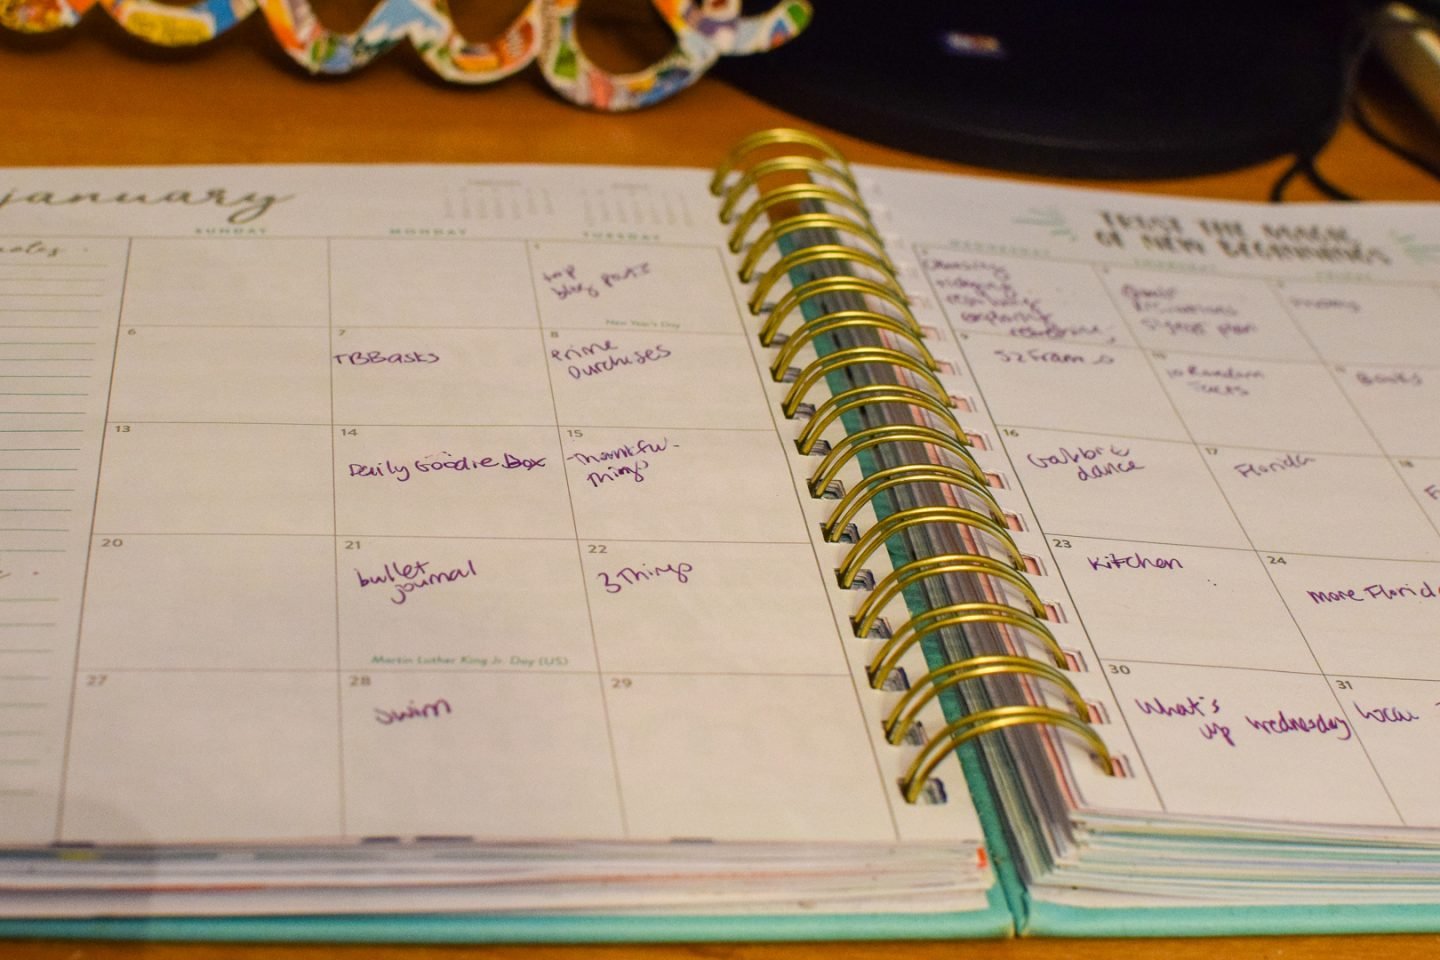 january
SUNDAY
MONDAY
TUESDAY
TRUST THE MAGIC
OF NEW BEGINNINGS
notes
1
top
blog posts
New Year's Day
6
7
TBBasks
8
Prime
Purchases
9
10
10 Random
Facts
Books
13
14
Daily Goodie Box
15
Thankful
Things
16
dance
17
Florida
18
20
21
bullet
journal
Martin Luther King Jr. Day (US)
22
3 Things
23
Kitchen
24
more Florida
27
28
swim
29
30
What's
up Wednesday
31
Local